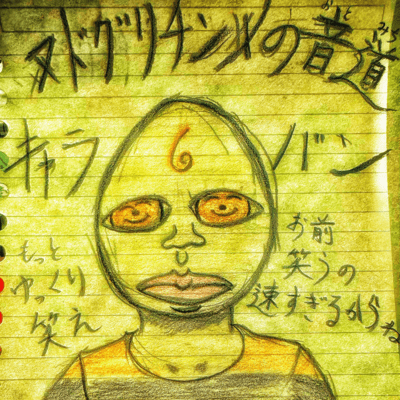 ヌドグリチンメの音道
おと みち
キャラバン
もっと
ゆっくり
笑え
お前
笑うの
速すぎるからね